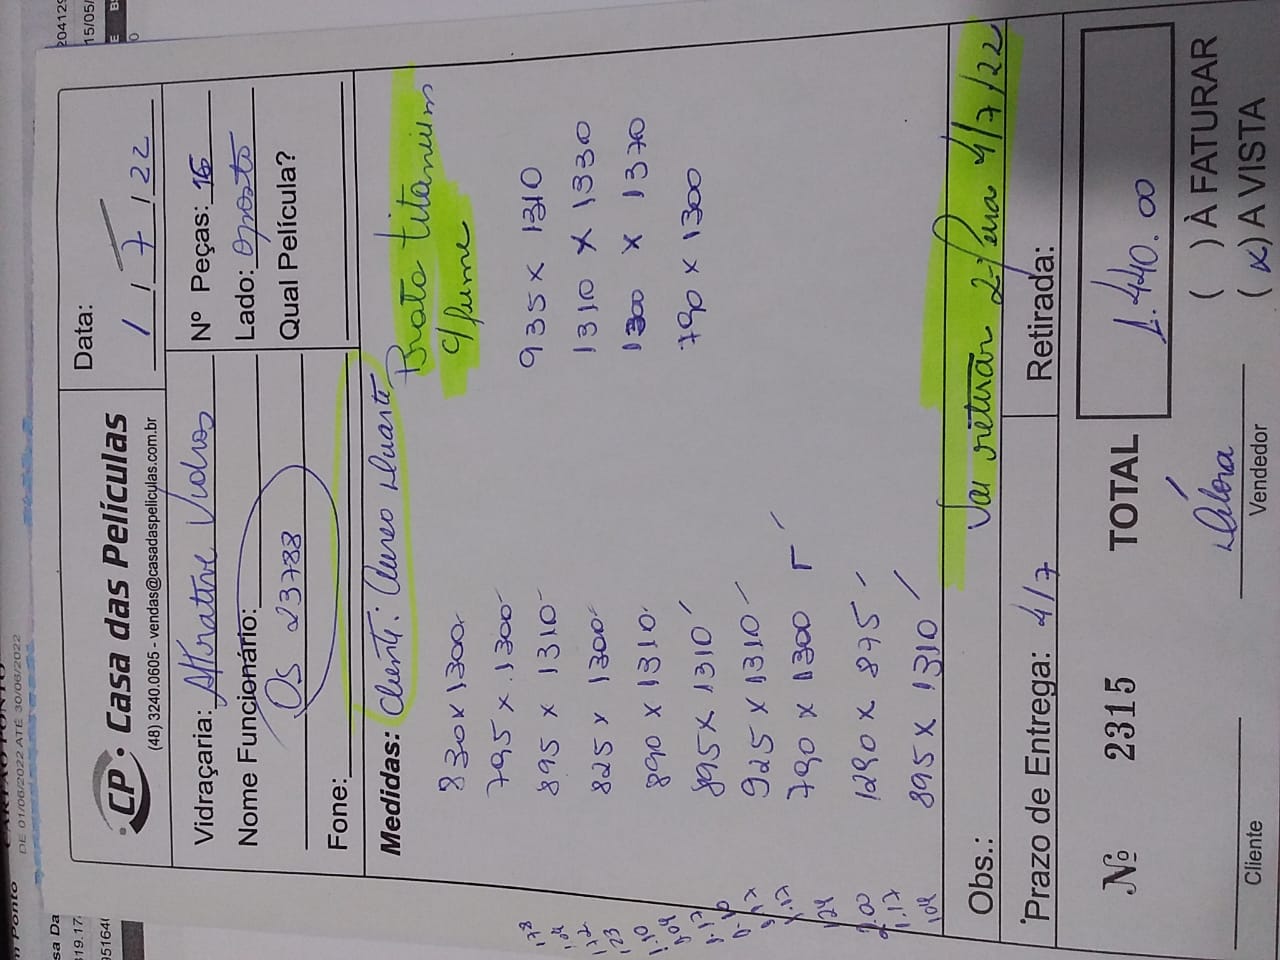 CP. Casa das Películas
(48) 3240.0605 - vendas@casadaspeliculas.com.br
Data:
1 / 7 / 22
Vidraçaria: Alternative Vidros
Nome Funcionário:
OS 23788
Fone:
Nº Peças: 16
Lado: Oposto
Qual Película?
Medidas: Cliente: Aureo Duarte
Prata titanium
c/ fume
830 x 1300
795 x 1300
895 x 1310
825 x 1300
890 x 1310
895 x 1310
925 x 1310
790 x 1300
1290 x 875
895 x 1310
935 x 1310
1310 x 1330
1300 x 1370
790 x 1300
Obs.: Vai retirar 2ª feira 4/7/22
Prazo de Entrega: 4/7
Retirada:
Nº 2315
TOTAL
1.440.00
( ) À FATURAR
(x) A VISTA
Cliente
Débora
Vendedor
DE 01/06/2022 ATÉ 30/06/2022